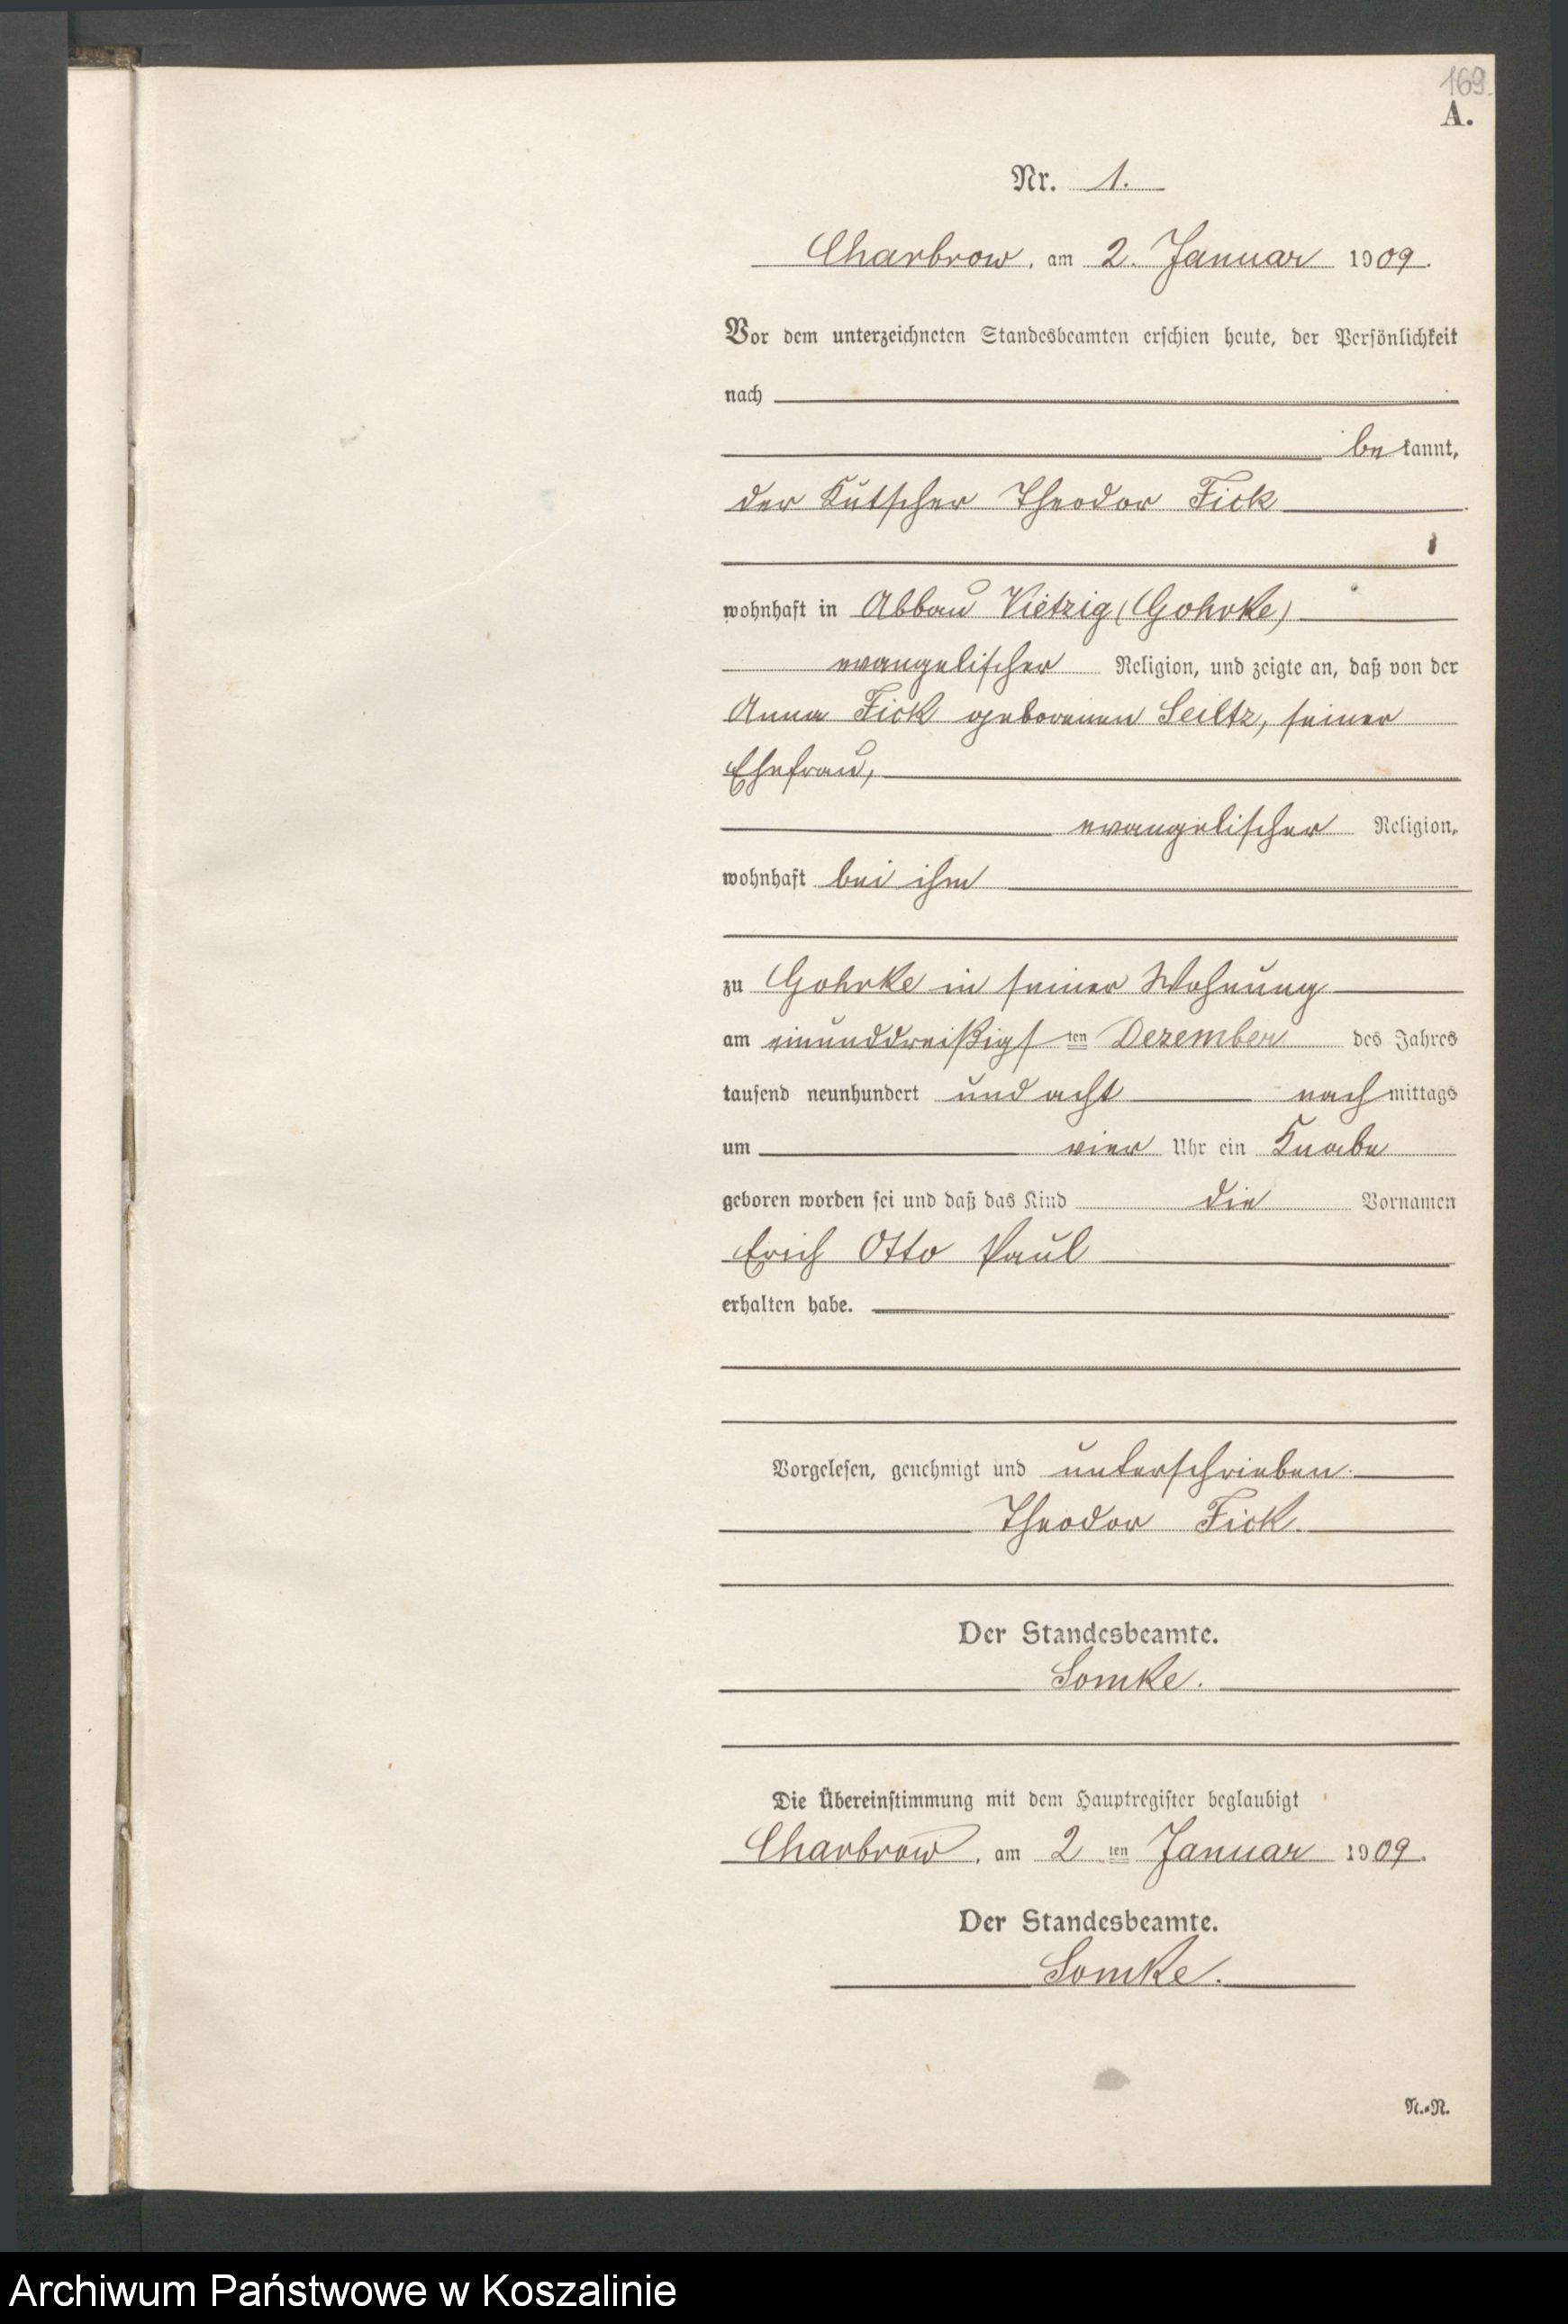 169.
A.
Nr. 1.
Charbrow, am 2. Januar 1909.
Vor dem unterzeichneten Standesbeamten erschien heute, der Persönlichkeit
nach
be kannt,
der Kutscher Theodor Fick
wohnhaft in Abbau Vietzig (Gohrke)
evangelischer Religion, und zeigte an, daß von der
Anna Fick geborenen Seiltz, seiner
Ehefrau,
evangelischer Religion,
wohnhaft bei ihm
zu Gohrke in seiner Wohnung
am einunddreißigs ten Dezember des Jahres
tausend neunhundert und acht nach mittags
um vier Uhr ein Knabe
geboren worden sei und daß das Kind die Vornamen
Erich Otto Paul
erhalten habe.
Vorgelesen, genehmigt und unterschrieben.
Theodor Fick.
Der Standesbeamte.
Somke.
Die Übereinstimmung mit dem Hauptregister beglaubigt
Charbrow, am 2 ten Januar 1909.
Der Standesbeamte.
Somke.
N.=R.
Archiwum Państwowe w Koszalinie